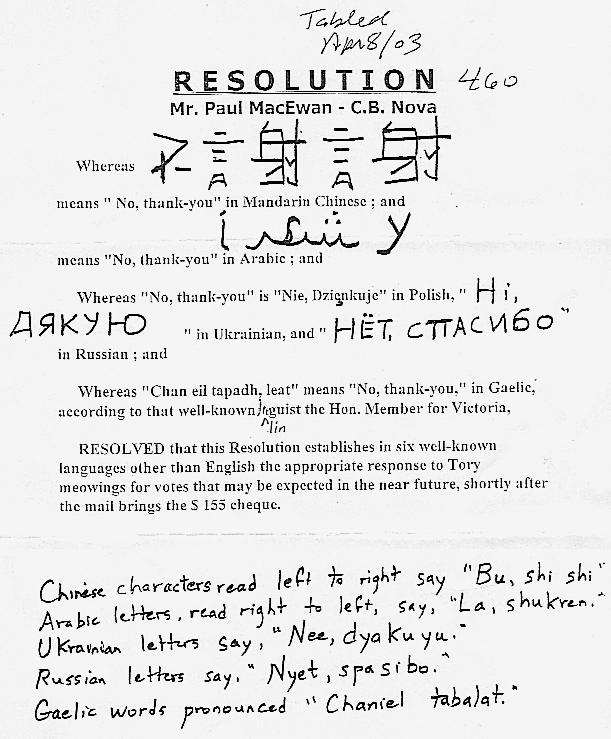 Tabled
Apr 8/03
RESOLUTION 460
Mr. Paul MacEwan - C.B. Nova
Whereas 不 謝 謝
means " No, thank-you" in Mandarin Chinese ; and
لا شكرا
means "No, thank-you" in Arabic ; and
Whereas "No, thank-you" is "Nie, Dzięnkuje" in Polish, " Ні,
ДЯКУЮ " in Ukrainian, and " НЁТ, СПАСИБО"
in Russian ; and
Whereas "Chan eil tapadh, leat" means "No, thank-you," in Gaelic,
according to that well-known linguist the Hon. Member for Victoria,
RESOLVED that this Resolution establishes in six well-known
languages other than English the appropriate response to Tory
meowings for votes that may be expected in the near future, shortly after
the mail brings the $ 155 cheque.
Chinese characters read left to right say "Bu, shi shi"
Arabic letters, read right to left, say, "La, shukren."
Ukrainian letters say, "Nee, dyakuyu."
Russian letters say, "Nyet, spasibo."
Gaelic words pronounced "Chaniel tabalat."